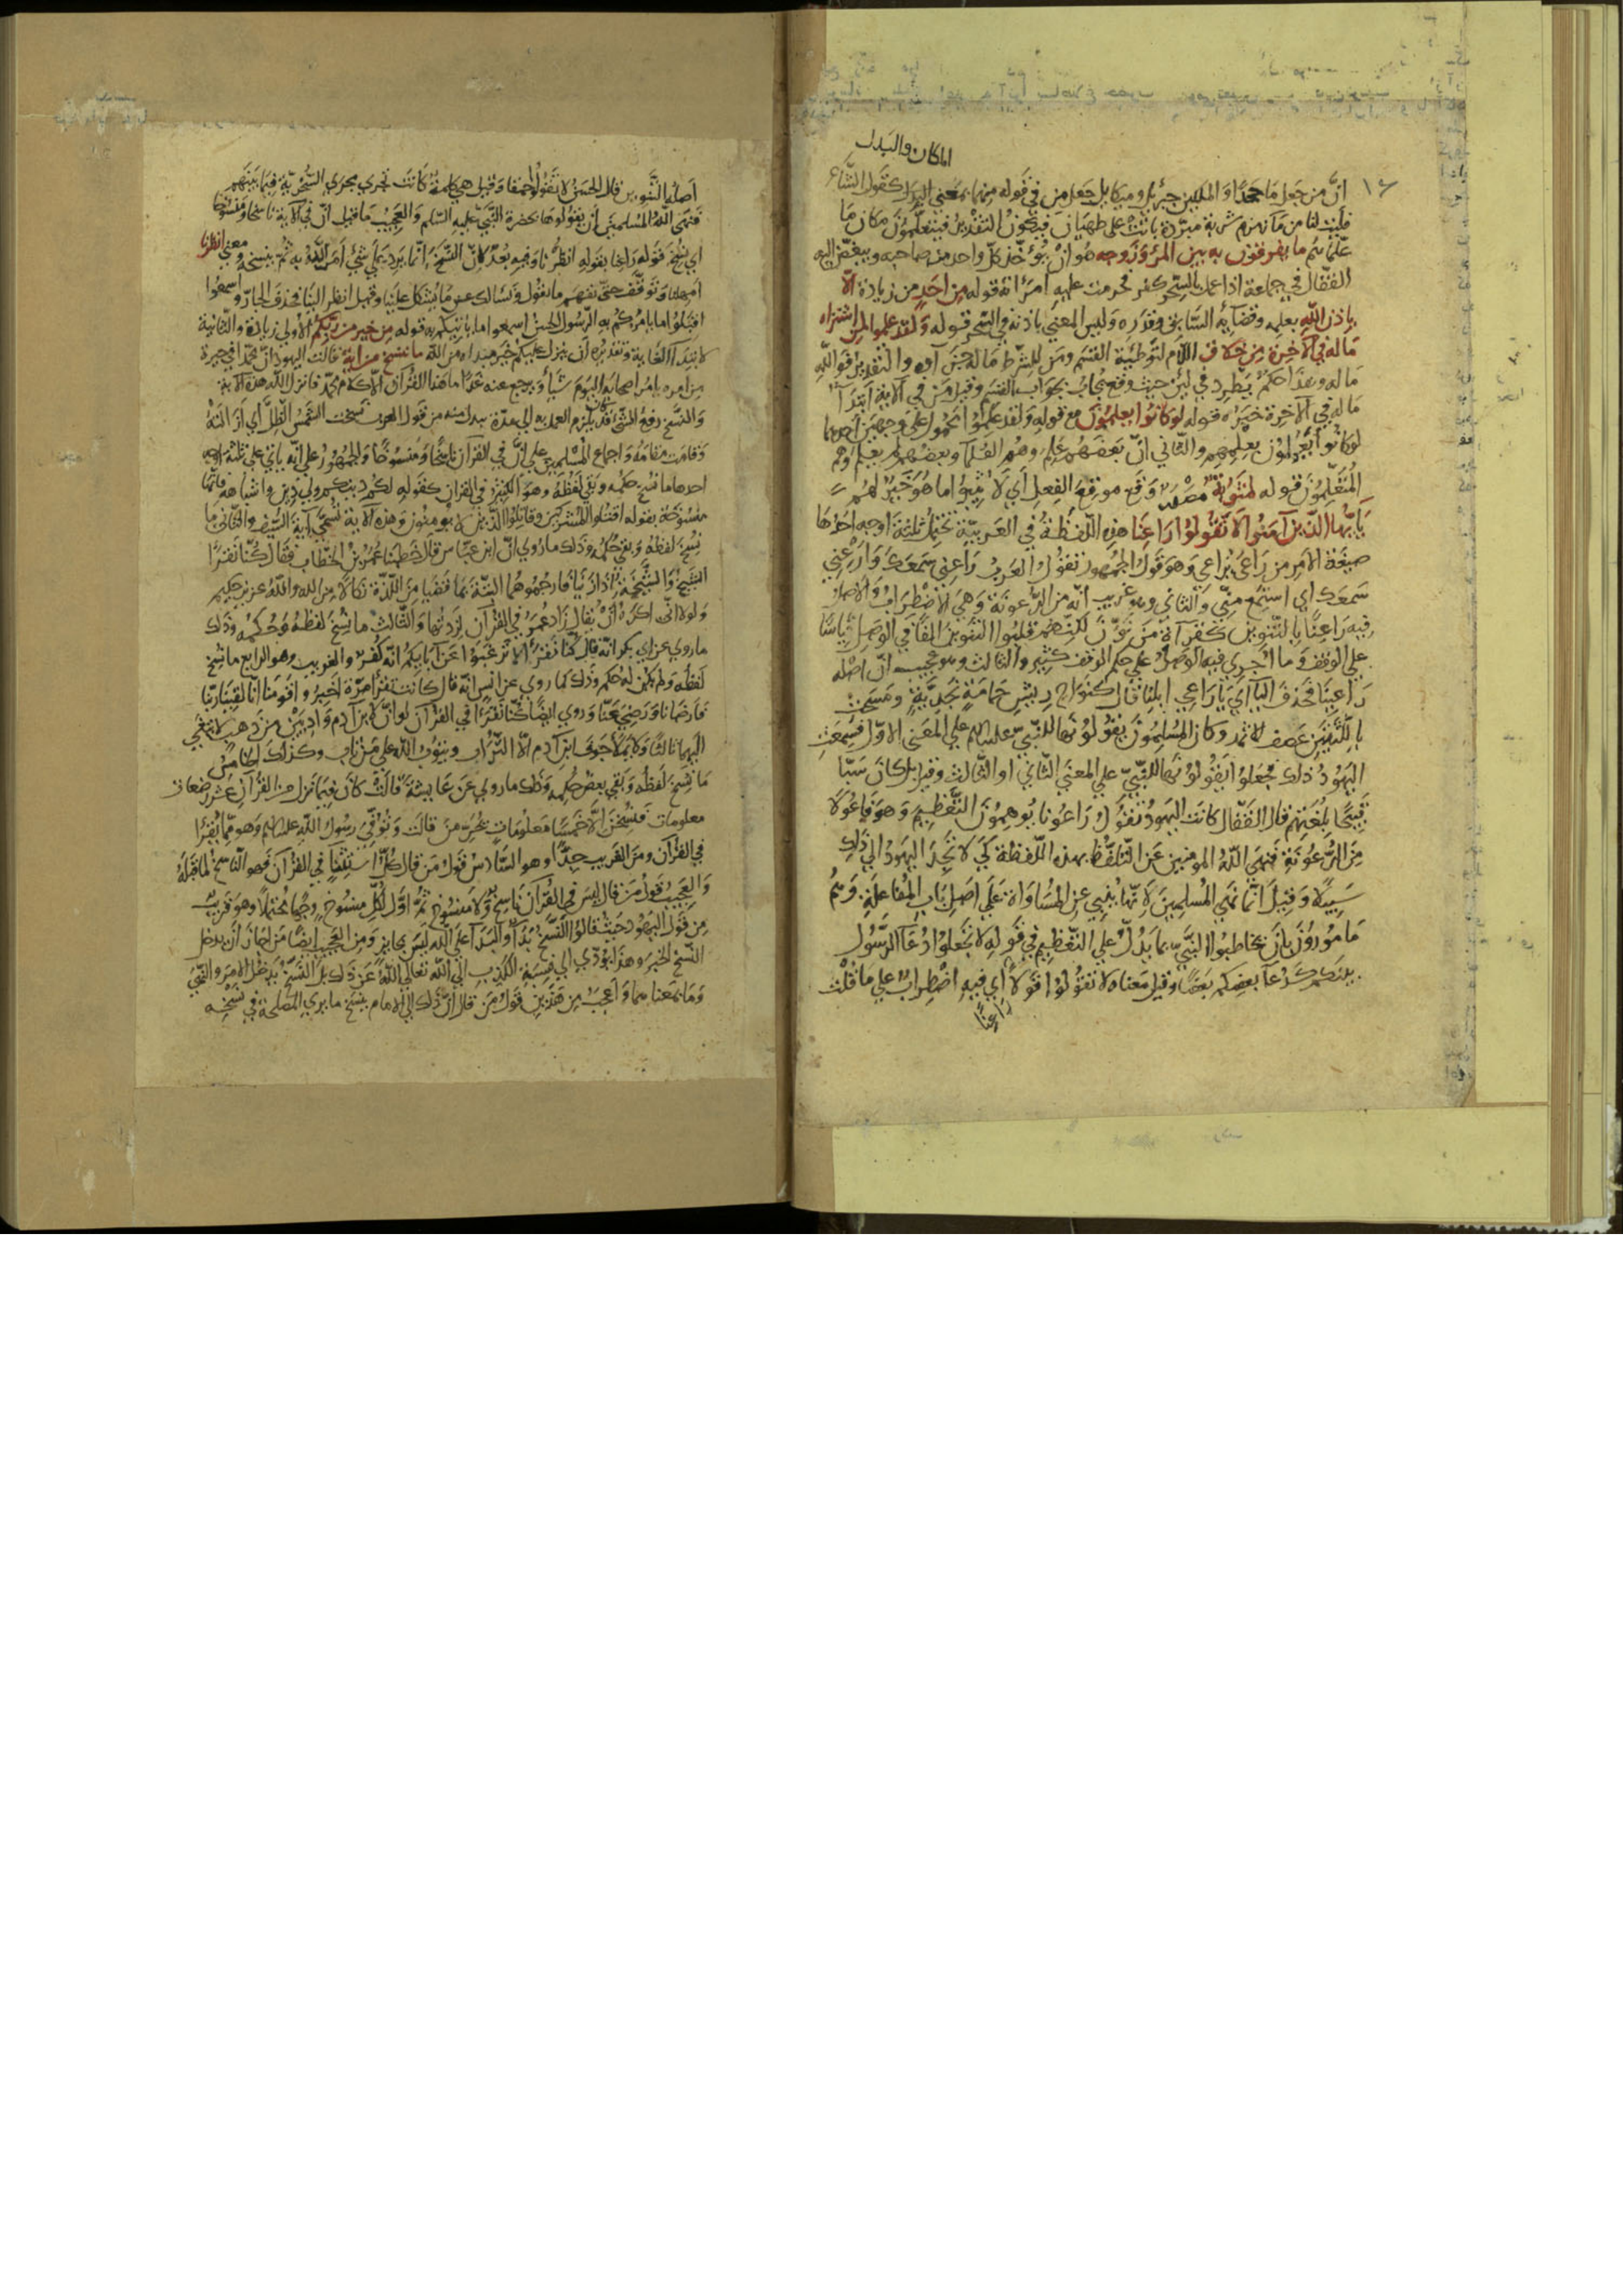 المكان والبدل
١٦
انّ من جعل ما جحدًا والملكين جبرئيل وميكايل جعل من في قوله منهما بمعنى البدل كقول الشاعر
فليت لنا من ماء زمزم شربة مبرّدة باتت على طهيان فيكون التقدير فيتعلّمون مكان ما
علّماهم ما يفرقون به بين المرء وزوجه هو ان يؤخّذ كلّ واحد من صاحبه ويبغّض اليه
القفّال في جماعة اذا عمل بالسّحر كفر فحرمت عليه امرأته قوله من احد من زيادة الّا
باذن الله بعلمه وقضايه السّابق وقدره وليس المعنى باذنه في السّحر قوله ولقد علموا لمن اشتراه
ما له في الآخرة من خلاق اللام لتوطئة القسم ومن للشرط ما له جوابه والتقدير فوالله
ما له وهذا حكم يطرد في لئن حيث وقع يجاب بجواب القسم وقيل من في الآية ابتدآ
ما له في الآخرة خبره قوله لو كانوا يعلمون مع قوله ولقد علموا محمول على وجهين احدهما
لو كانوا يعملون بعلمهم والثّاني انّ بعضهم علم وهم العلمآ وبعضهم لم يعلم وهم
المتعلّمون قوله لمثوبة مصدر وقع موقع الفعل اي لاثيبوا اما هو خير لهم
يا ايّها الذين آمنوا لا تقولوا راعنا هذه اللّفظة في العربيّة تحتمل ثلثة اوجه احدها
صيغة الامر من راعى يراعي وهو قول الجمهور تقول العرب راعني سمعك وارعني
سمعك اي استمع منّي والثاني وهو غريب انّه من الرّعونة وهي الاضطراب والاصل
فيه راعنًا بالتّنوين كقرآة من نوّن لكنّهم قلبوا التنوين الفًا في الوصل قياسًا
على الوقف وما اجري فيه الوصل على حكم الوقف كثير والثالث وهو عجيب انّ اصله
راعينا فحذف اليآ اي يا راعي ابلنا قال كنواح ريش حمامة نجديّة ومسحت
باللّثتين عصف الاثمد وكان المسلمون يقولونها للنّبيّ عليه السلم على المعنى الاوّل فسمعت
اليهود ذلك فجعلوا يقولونها للنّبيّ على المعنى الثّاني او الثّالث وقيل بل كان سبّا
قبيحًا بلغتهم قال القفّال كانت اليهود تقول راعونا يوهمون التّعظيم وهو فاعولا
من الرّعونة فنهى الله المومنين عن التّلفّظ بهذه اللّفظة كي لا تجد اليهود الى ذلك
سبيلا وقيل انّما نهى المسلمين لانّها ينبي عن المساواة على اصل باب المفاعلة وهم
مامورون بان يخاطبوا النبيّ بما يدلّ على التّعظيم في قوله لا تجعلوا دعآ الرّسول
بينكم كدعآ بعضكم بعضًا وقيل معناه لا تقولوا قولًا اي فيه اضطراب على ما قلت
راعنًا
اصله التّنوين قال الحسن لا تقولوا حمقا وقيل هي كلمة كانت تجري مجرى السّخريّة فيما بينهم
فنهى الله المسلمين ان يقولوها بحضرة النّبيّ عليه السّلم والعجيب ما قيل انّ في الآية ناسخًا ومنسوخًا
اي نسخ قوله راعنا بقوله انظرنا وفيه بعد لانّ النّسخ انّما يرد على شيء امر الله به ثمّ ينسخه ومعنى انظرنا
امهلنا وتوقّف حتّى نفهم ما تقول ونسالك عن ما يشكل علينا وقيل انظر الينا فحذف الجارّ واسمعوا
اقبلوا ما يامركم به الرّسول الحسن اسمعوا ما ياتيكم به قوله من خير من ربّكم الاولى زيادة والثّانية
لابتدآ الغاية وتقديره ان ينزل عليكم خير مبتداه من الله ما ننسخ من آية قالت اليهود انّ محمّدًا في حيرة
من امره يامر اصحابه اليوم شيأ ويرجع عنه غدًا ما هذا القرآن الّا كلام محمّد فانزل الله هذه الآية
والنسخ رفع الشّيء قد كان يلزم العمل به الى مدّة ببدل منه من قول العرب نسخت الشّمس الظّلّ اي ازالته
وقامت مقامه واجماع المسلمين على انّ في القرآن ناسخًا ومنسوخًا والجمهور على انّه ياتي على ثلثة اوجه
احدها ما نسخ حكمه وبقي لفظه وهو الكثير في القرآن كقوله لكم دينكم ولي دين واشباهه فانّها
منسوخة بقوله اقتلوا المشركين وقاتلوا الّذين لا يومنون وهذه الآية تسمّى آية السّيف والثّاني ما
نسخ لفظه وبقي حكمه وذلك ما روي انّ ابن عبّاس قال خطبنا عمر بن الخطّاب فقال كنّا نقرأ
الشّيخ والشّيخة اذا زنيا فارجموهما البتّة بما قضيا من اللّذّة نكالا من الله والله عزيز حكيم
ولولا انّي اكره ان يقال زاد عمر في القرآن لزدتها والثّالث ما نسخ لفظه وحكمه وذلك
ما روي عن ابي بكر انّه قال كنّا نقرأ لا ترغبوا عن آبايكم انّه كفر والغريب وهو الرابع ما نسخ
لفظه ولم يكن له حكم وذلك كما روي عن انس انّه قال كانت تقرأ مرّة اخبروا قومنا انّا لقينا ربّنا
فارضانا ورضي عنّا وروي ايضًا كنّا نقرأ في القرآن لو انّ لابن آدم واديين من ذهب لابتغى
اليهما ثالثًا ولا يملأ جوف ابن آدم الّا التّراب ويتوب الله على من تاب وكذلك الخامس
ما نسخ لفظه وبقي بعض حكمه وذلك ما روي عن عايشة قالت كان فيما نزل من القرآن عشر رضعات
معلومات فنسخن الّا خمسًا معلومات يحرّمن قالت وتوفّي رسول الله عليه السلم وهو ممّا يقرأ
في القرآن ومن الغريب جدًّا وهو السّادس قول من قال كلّ استثنآ في القرآن فهو النّاسخ لما قبله
والعجيب قول من قال ليس في القرآن ناسخ ولا منسوخ ثمّ اوّل لكلّ منسوخ وجهًا محتملًا وهو قريب
من قول اليهود حيث قالوا النّسخ بدآ والبدآ على الله ليس بجايز ومن العجيب ايضًا من اجاز ان يدخل
النّسخ الخبر وهذا يؤدّي الى نسبة الكذب الى الله تعالى الله عن ذلك بل النّسخ يدخل الامر والنّهي
وما بمعناهما واعجب من هذين قول من قال انّ ذلك الى الامام ينسخ ما يرى المصلحة في نسخه